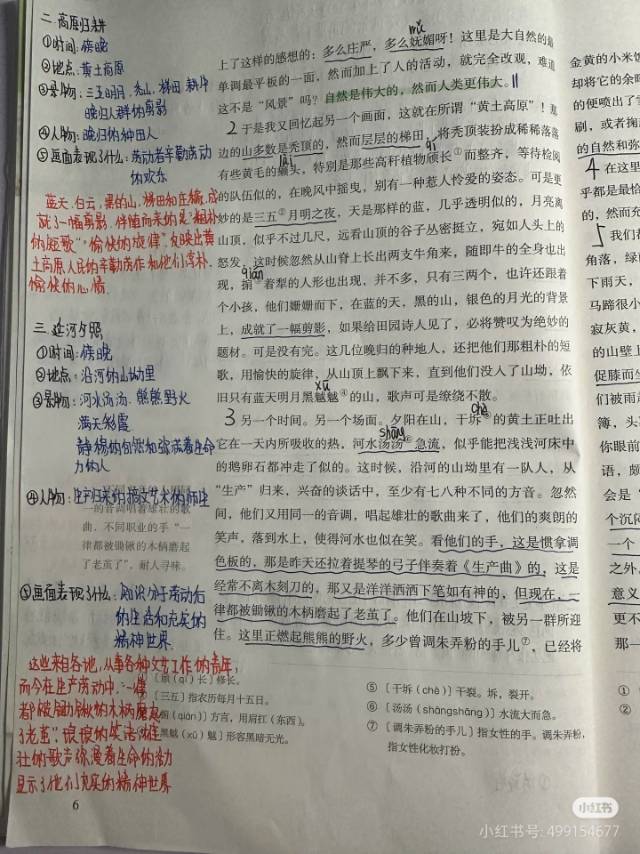 二.高原归耕
①时间:傍晚
②地点:黄土高原
③景物:三五明月、秃山、梯田、耕牛
晚归人群的剪影
④人物:晚归的种田人
⑤画面表现了什么:劳动者辛勤劳动
的欢乐
蓝天、白云、黑的山、梯田和庄稼,成
就了一幅剪影,伴随而来的是"粗朴
的短歌""愉快的旋律",反映出黄
土高原人民的辛勤劳作和他们淳朴、
愉快的心情
三.延河夕照
①时间:傍晚
②地点:沿河的山坳里
③景物:河水汤汤、熊熊野火
满天彩霞
静穆的自然和弥满着生命
力的人
④人物:生产归来的鲁艺艺术的师生
一的音调唱着雄壮的歌
曲,不同职业的手"一
律都被锄锹的木柄磨起
了老茧了",耐人寻味。
⑤画面表现了什么:知识分子劳动后
的生活和充实的
精神世界
这些来自各地,从事各种文艺工作的青年,
而今在生产劳动中,一律
都"被锄锹的木柄磨起
了老茧",爽朗的笑语、雄
壮的歌声弥漫着生命的活力
显示了他们充实的精神世界
6
mǔ
上了这样的感想的:多么庄严,多么妩媚呀!这里是大自然的最
单调最平板的一面,然而加上了人的活动,就完全改观,难道
这不是"风景"吗?自然是伟大的,然而人类更伟大。
2于是我又回忆起另一个画面,这就在所谓"黄土高原"!那
边的山多数是秃顶的,然而层层的梯田,将秃顶装扮成稀稀落落
lài
qí
有些黄毛的癞头,特别是那些高秆植物颀长①而整齐,等待检阅
的队伍似的,在晚风中摇曳,别有一种惹人怜爱的姿态。可是更
妙的是三五②月明之夜,天是那样的蓝,几乎透明似的,月亮离
山顶,似乎不过几尺,远看山顶的谷子丛密挺立,宛如人头上的
怒发,这时候忽然从山脊上长出两支牛角来,随即牛的全身也出
qián
现,掮③着犁的人形也出现,并不多,只有三两个,也许还跟着
个小孩,他们姗姗而下,在蓝的天,黑的山,银色的月光的背景
上,成就了一幅剪影,如果给田园诗人见了,必将赞叹为绝妙的
题材。可是没有完。这几位晚归的种地人,还把他们那粗朴的短
歌,用愉快的旋律,从山顶上飘下来,直到他们没入了山坳,依
xū
旧只有蓝天明月黑魆魆④的山,歌声可是缭绕不散。
chè
3另一个时间。另一个场面。夕阳在山,干坼⑤的黄土正吐出
shāng
它在一天内所吸收的热,河水汤汤⑥急流,似乎能把浅浅河床中
的鹅卵石都冲走了似的。这时候,沿河的山坳里有一队人,从
"生产"归来,兴奋的谈话中,至少有七八种不同的方音。忽然
间,他们又用同一的音调,唱起雄壮的歌曲来了,他们的爽朗的
笑声,落到水上,使得河水也似在笑。看他们的手,这是惯拿调
色板的,那是昨天还拉着提琴的弓子伴奏着《生产曲》的,这是
经常不离木刻刀的,那又是洋洋洒洒下笔如有神的,但现在,一
律都被锄锹的木柄磨起了老茧了。他们在山坡下,被另一群所迎
住。这里正燃起熊熊的野火,多少曾调朱弄粉的手儿⑦,已经将
〔颀(qí)长〕修长。
〔三五〕指农历每月十五日。
〔掮(qián)〕方言,用肩扛(东西)。
〔黑魆(xū)魆〕形容黑暗无光。
⑤〔干坼(chè)〕干裂。坼,裂开。
⑥〔汤汤(shāngshāng)〕水流大而急。
⑦〔调朱弄粉的手儿〕指女性的手。调朱弄粉,
指女性化妆打扮。
金黄的小米饭
却将它的余
的便喷出了
刷,或者掬
的自然和弥
4在这里
乎都是最恰
的,然而充
5我们都
角落,绿
下雨天,
马蹄很小
寂灰黄,
的山壁上
促膝而坐
们被雨
簿,头
你眼前
语,颇
会是
个沉
一个
之外,
意义
更不
那么
①〔
②〔
小红书
小红书号:499154677